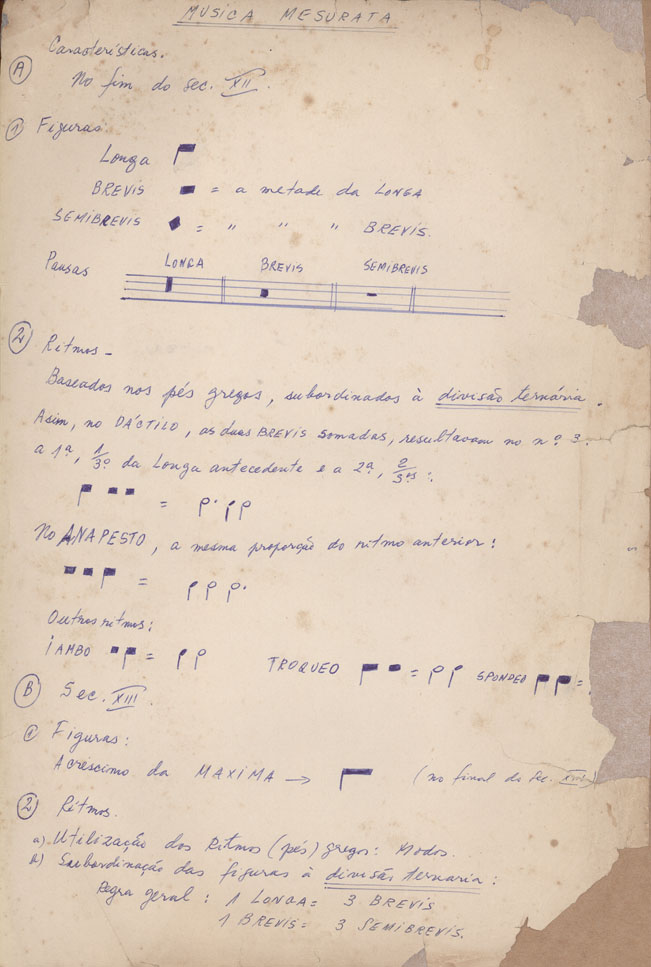 MUSICA MESURATA
A Características.
No fim do sec. XII.
1 Figuras
Longa
BREVIS = a metade da LONGA
SEMIBREVIS = " " " BREVIS.
Pausas LONGA BREVIS SEMIBREVIS
2 Ritmos -
Baseados nos pés gregos, subordinados à divisão ternária.
Asim, no DÁCTILO, as duas BREVIS somadas, resultavam no nº 3.
a 1ª, 1/3º da Longa antecedente e a 2ª, 2/3ºs:
=
No ANAPESTO, a mesma proporção do ritmo anterior:
=
Outros ritmos:
IAMBO = TROQUEO = SPONDEO =
B Sec. XIII.
1 Figuras:
Acrescimo da MAXIMA → (no final do Sec. XIII)
2 Ritmos.
a) Utilização dos Ritmos (pés) gregos: Modos.
b) Subordinação das figuras à divisão ternaria:
Regra geral: 1 LONGA = 3 BREVIS
1 BREVIS = 3 SEMIBREVIS.